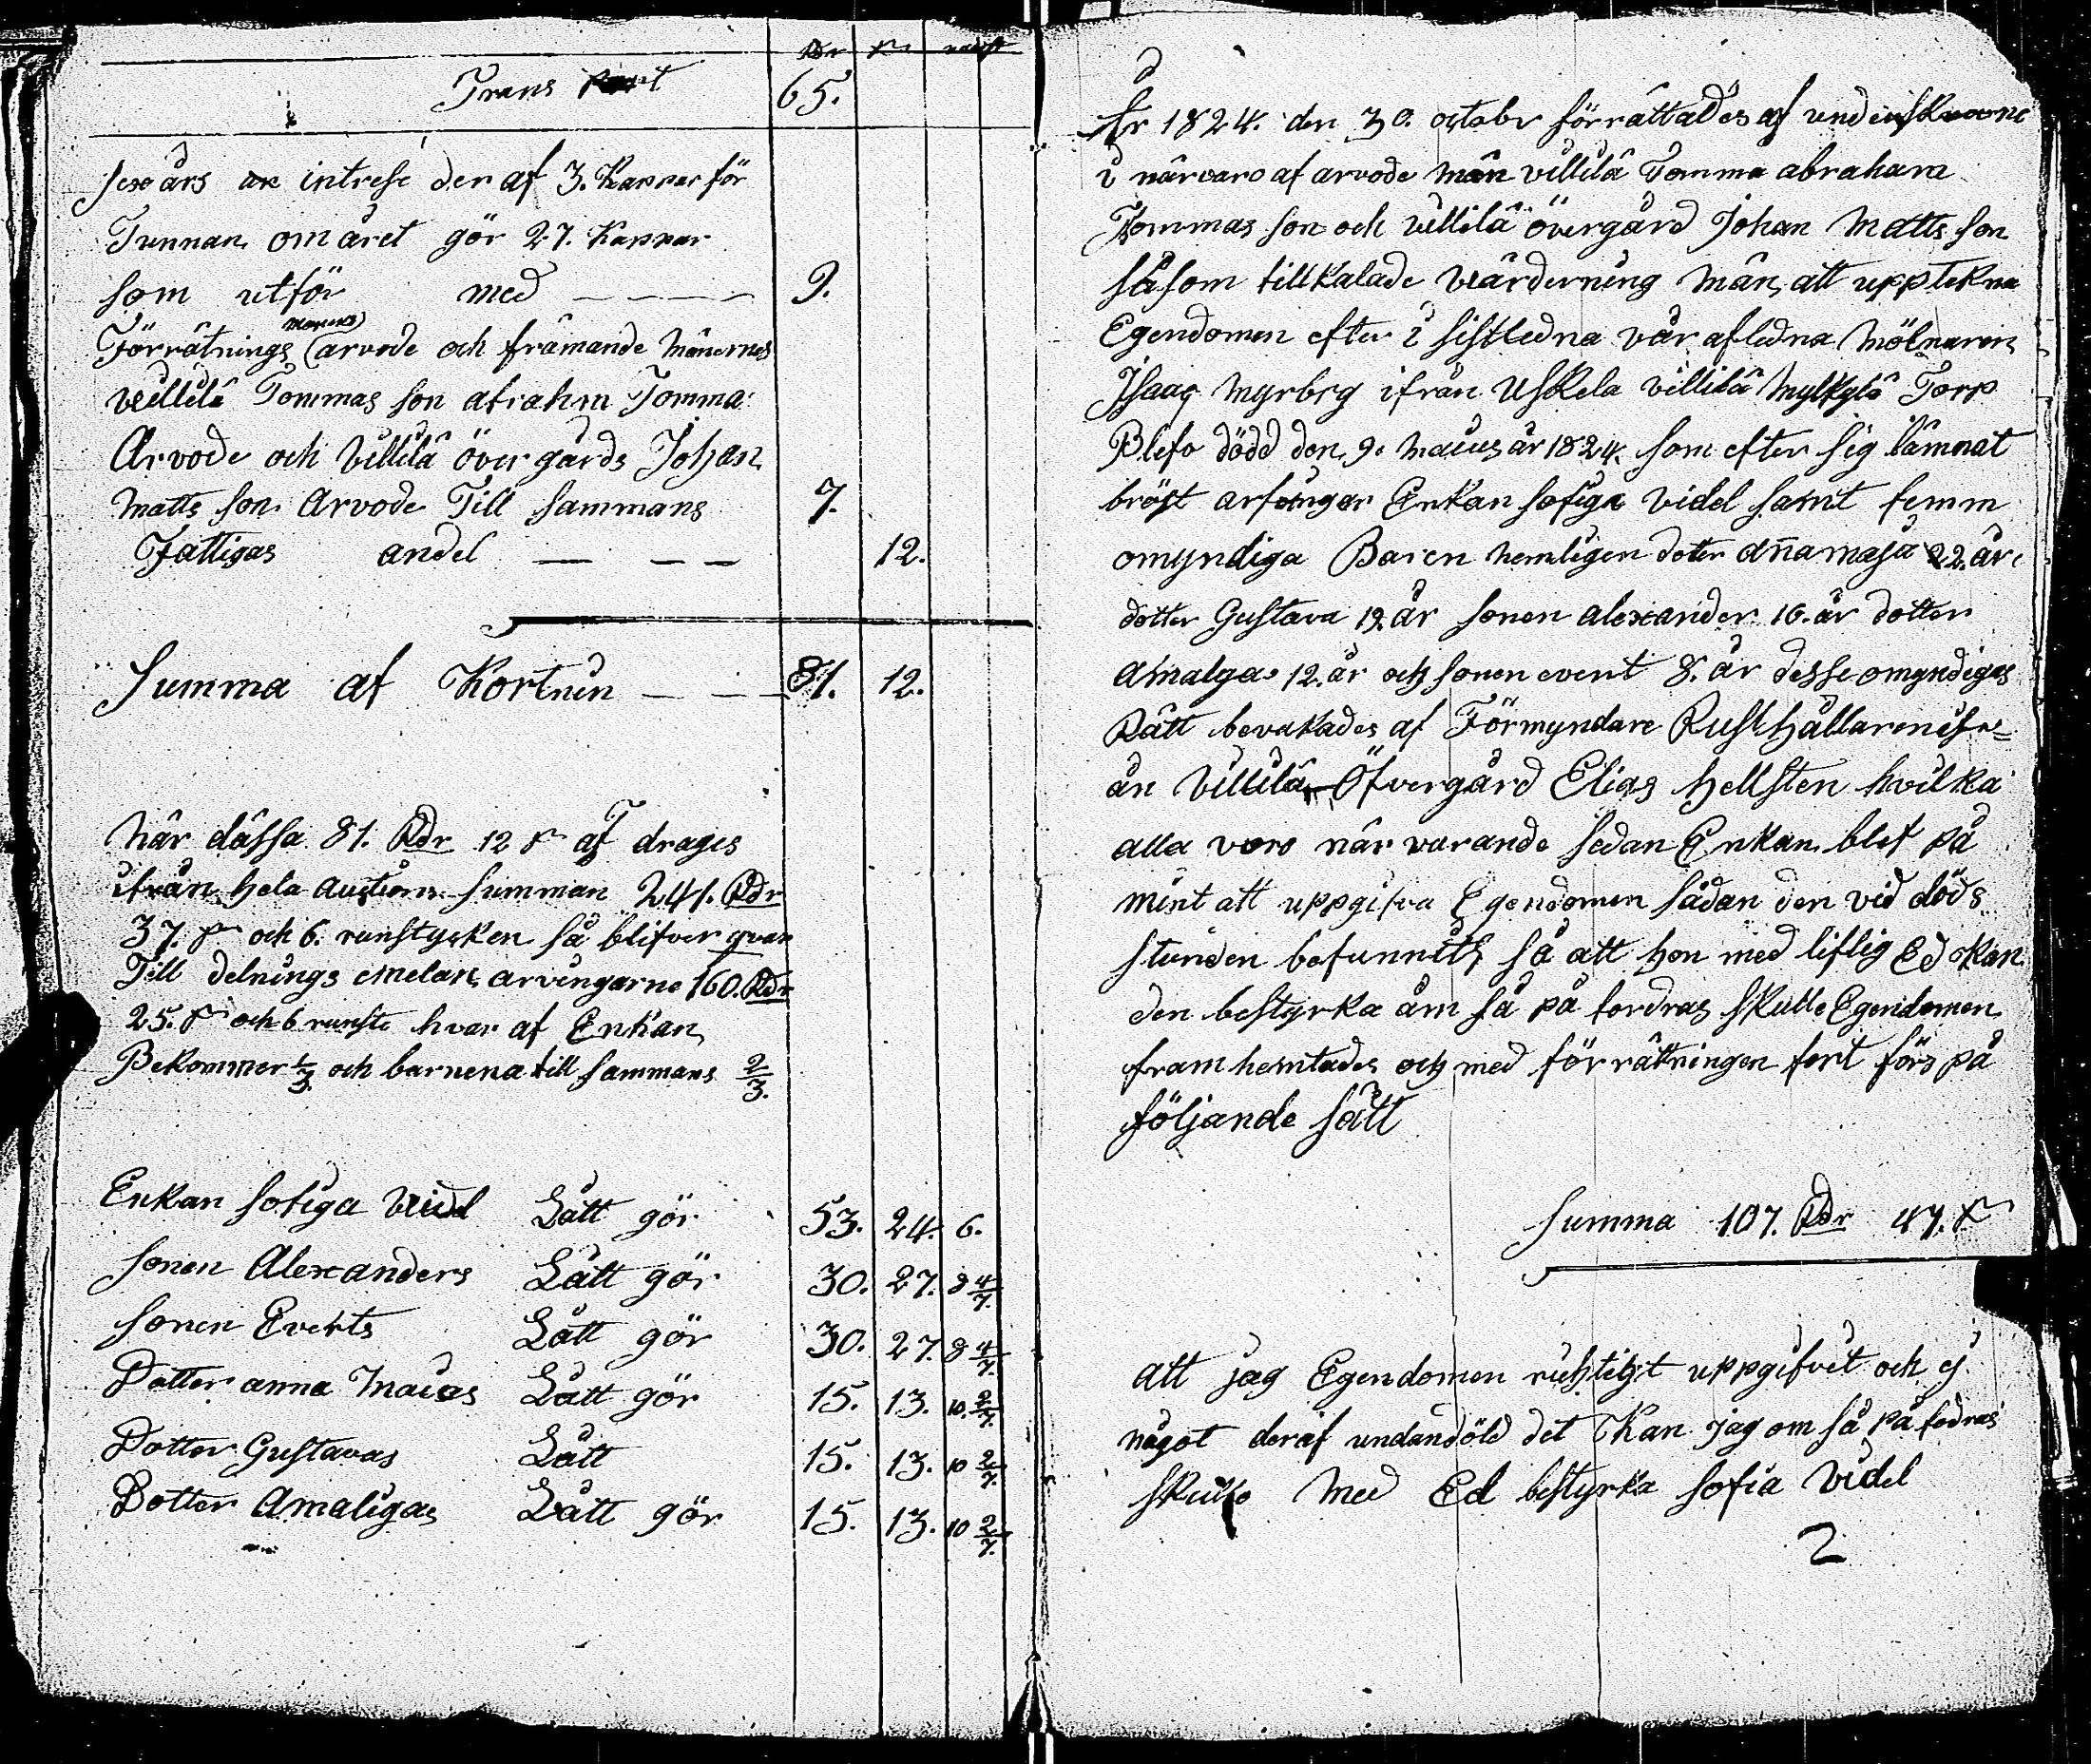 Rdr s runst
Trans port 65.
sex års an intrese der af 3. Kappar för
Tunnan om året gör 27. Kappar
som utför med — — — — 9.
manens
Förrätnings arvode och främande Mänernes
Villilä Tommas son abrahm Tomma
Arvode och Villilä över gårds Johan
Matts son Arvode Till sammans 7.
Fattigas andel — — — 12.
Summa af Kortnin — — — 81. 12.
När dässa 81. Rdr 12 s af drages
ifrån hela Auctions summan 241. Rdr
37. s och 6. runstycken så blifver qvar
Till delnings emelan arvingarne 160. Rdr
25. s och 6 runste hvar af Enkan
Bekommer 1/3 och barnena till sammans 2/3.
Enkan sofiga Veidel Lått gör 53. 24. 6.
sonen Alexanders Lått gör 30. 27. 8 4/7.
sonen Everts Lått gör 30. 27. 8 4/7.
Dotter anna Maias Lått gör 15. 13. 10. 2/7.
Dotter Gustavas Lått 15. 13. 10 2/7.
Dotter Amaligas Lått gör 15. 13. 10 2/7.
År 1824. den 30. octobr förrättades af undenskrevne
i närvaro af arvode män villilä Tomma abraham
Tommas son och villilä övergård Johan Matts son
såsom tillkalade värderning män, att upptekna
Egendomen efter i sistledna vår afledna Mölnaren
Isaac Myrbrg ifrån Uskela villilä Myllkylä Torp
Blefv död den 9. Maius år 1824. som efter sig lämnat
bröst arfvingar Enkan sofiga Videl samt femm
omyndiga Baren nemligen doter Anna Maja 22. år
dotter Gustava 19. år sonen alexander 16. år dotter
Amalga 12. år och sonen evert 8. år desse omyndigas
Rätt bevakades af Förmyndare Rusthållaren ifr=
ån Villilä Öfvergård Elias Hellsten hvilka
alla voro när varande sedan Enkan blef på
mint att uppgifva Egendomen sådan den vid döds
stunden befunnits så att hon med liflig Ed kan
den bestyrka om så på fordras skulle Egendomen
fram hemtades och med förrättningen fort förs på
följande sätt
Summa 107. Rdr 47. s
att jag Egendomen richtigt uppgifvit och ej
något deraf undandöld det Kan jag om så på fodras
skulle Med Ed bestyrka sofia Videl
2